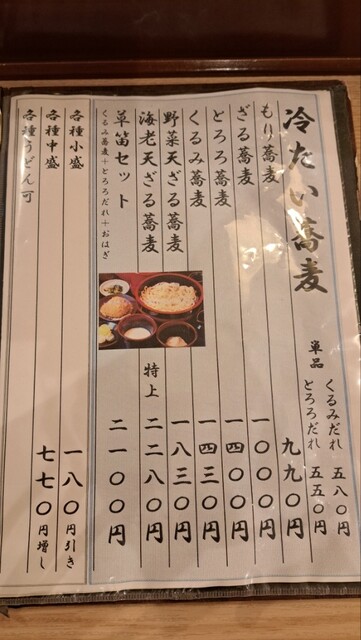 冷たい蕎麦
単品
くるみだれ 五八〇円
とろろだれ 五五〇円
もり蕎麦 九九〇円
ざる蕎麦 一〇〇〇円
とろろ蕎麦 一四〇〇円
くるみ蕎麦 一四三〇円
野菜天ざる蕎麦 一八三〇円
海老天ざる蕎麦 特上 二二八〇円
草笛セット 二一〇〇円
くるみ蕎麦+とろろだれ+おはぎ
各種小盛 一八〇円引き
各種中盛 七七〇円増し
各種うどん可